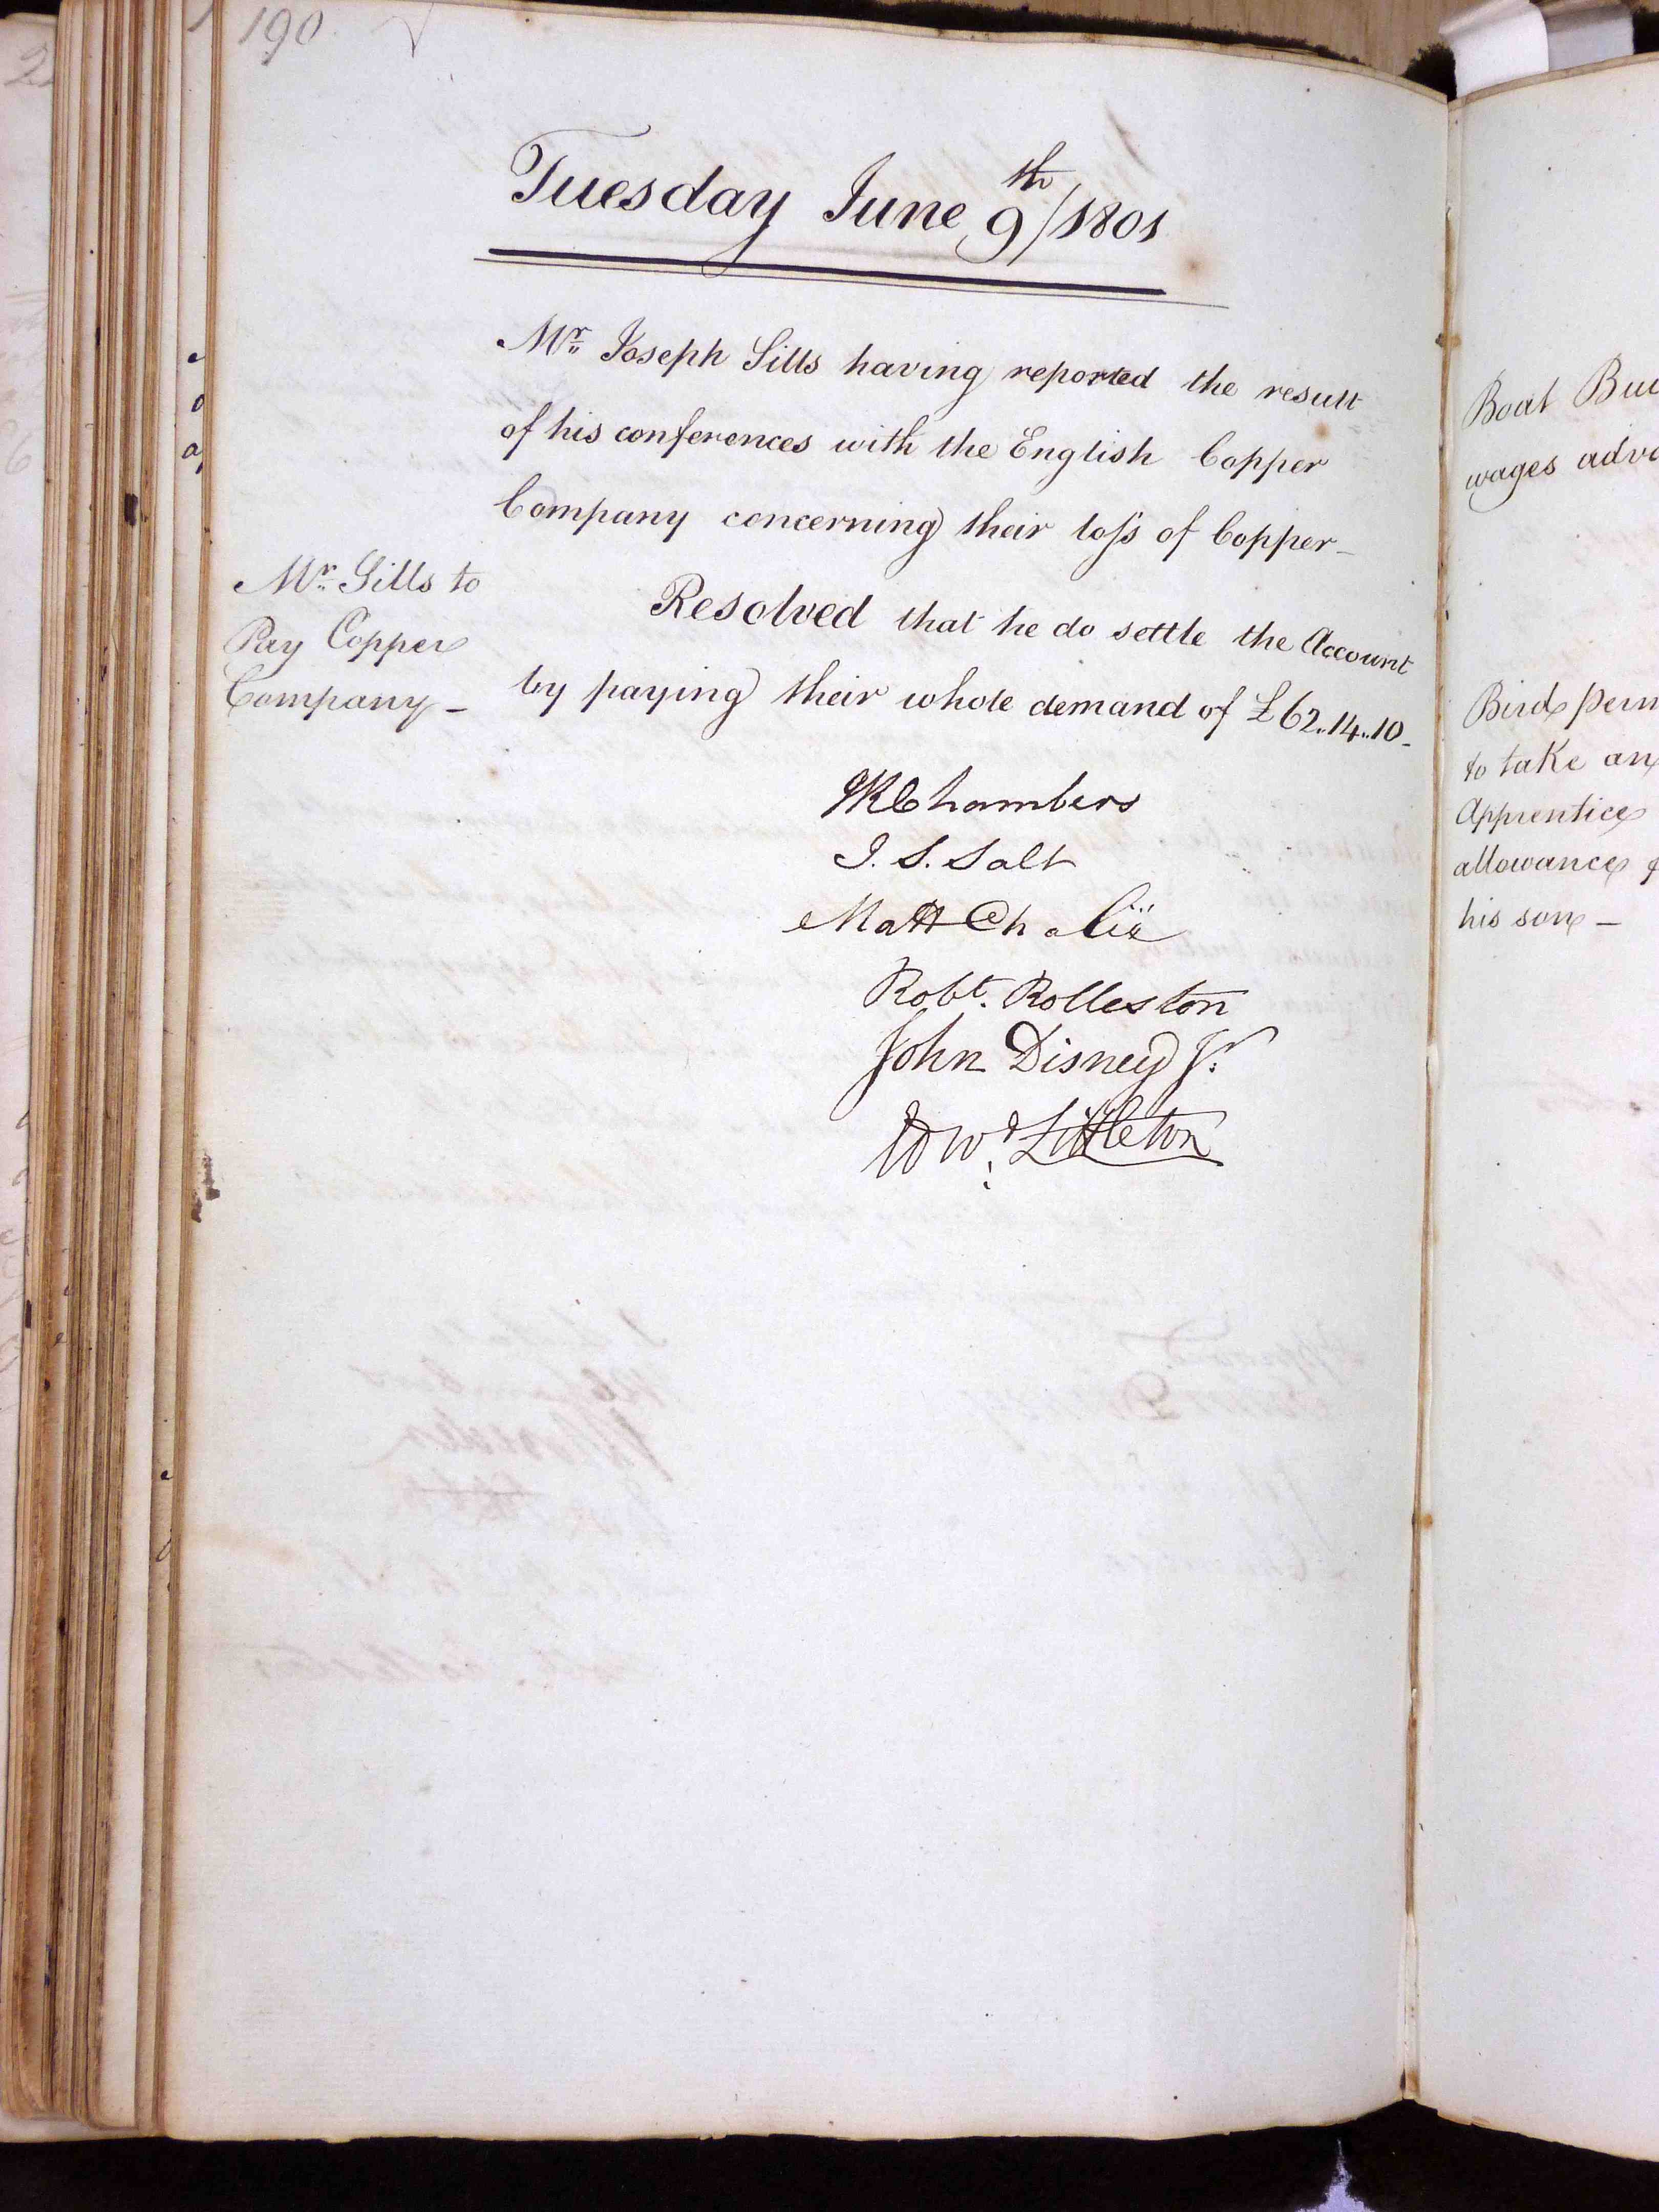 190
Tuesday June 9th/1801
Mr. Joseph Sills having reported the result
of his conferences with the English Copper
Company concerning their loss of Copper_
Mr. Sills to
Pay Copper
Company_
Resolved that he do settle the Account
by paying their whole demand of £62..14..10_
Chambers
J. S. Salt
Matt Chalië
Robt. Rolleston
John Disney Jr.
Edwd. Littleton
Boat
wages
Bird
to take an
Apprentice
allowance
his son_